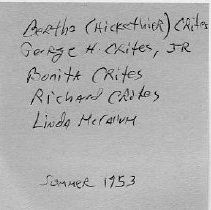 Bertha (Hickethier) Crites
George H. Crites, JR
Bonita Crites
Richard Crites
Linda McCallum
Sommer 1953